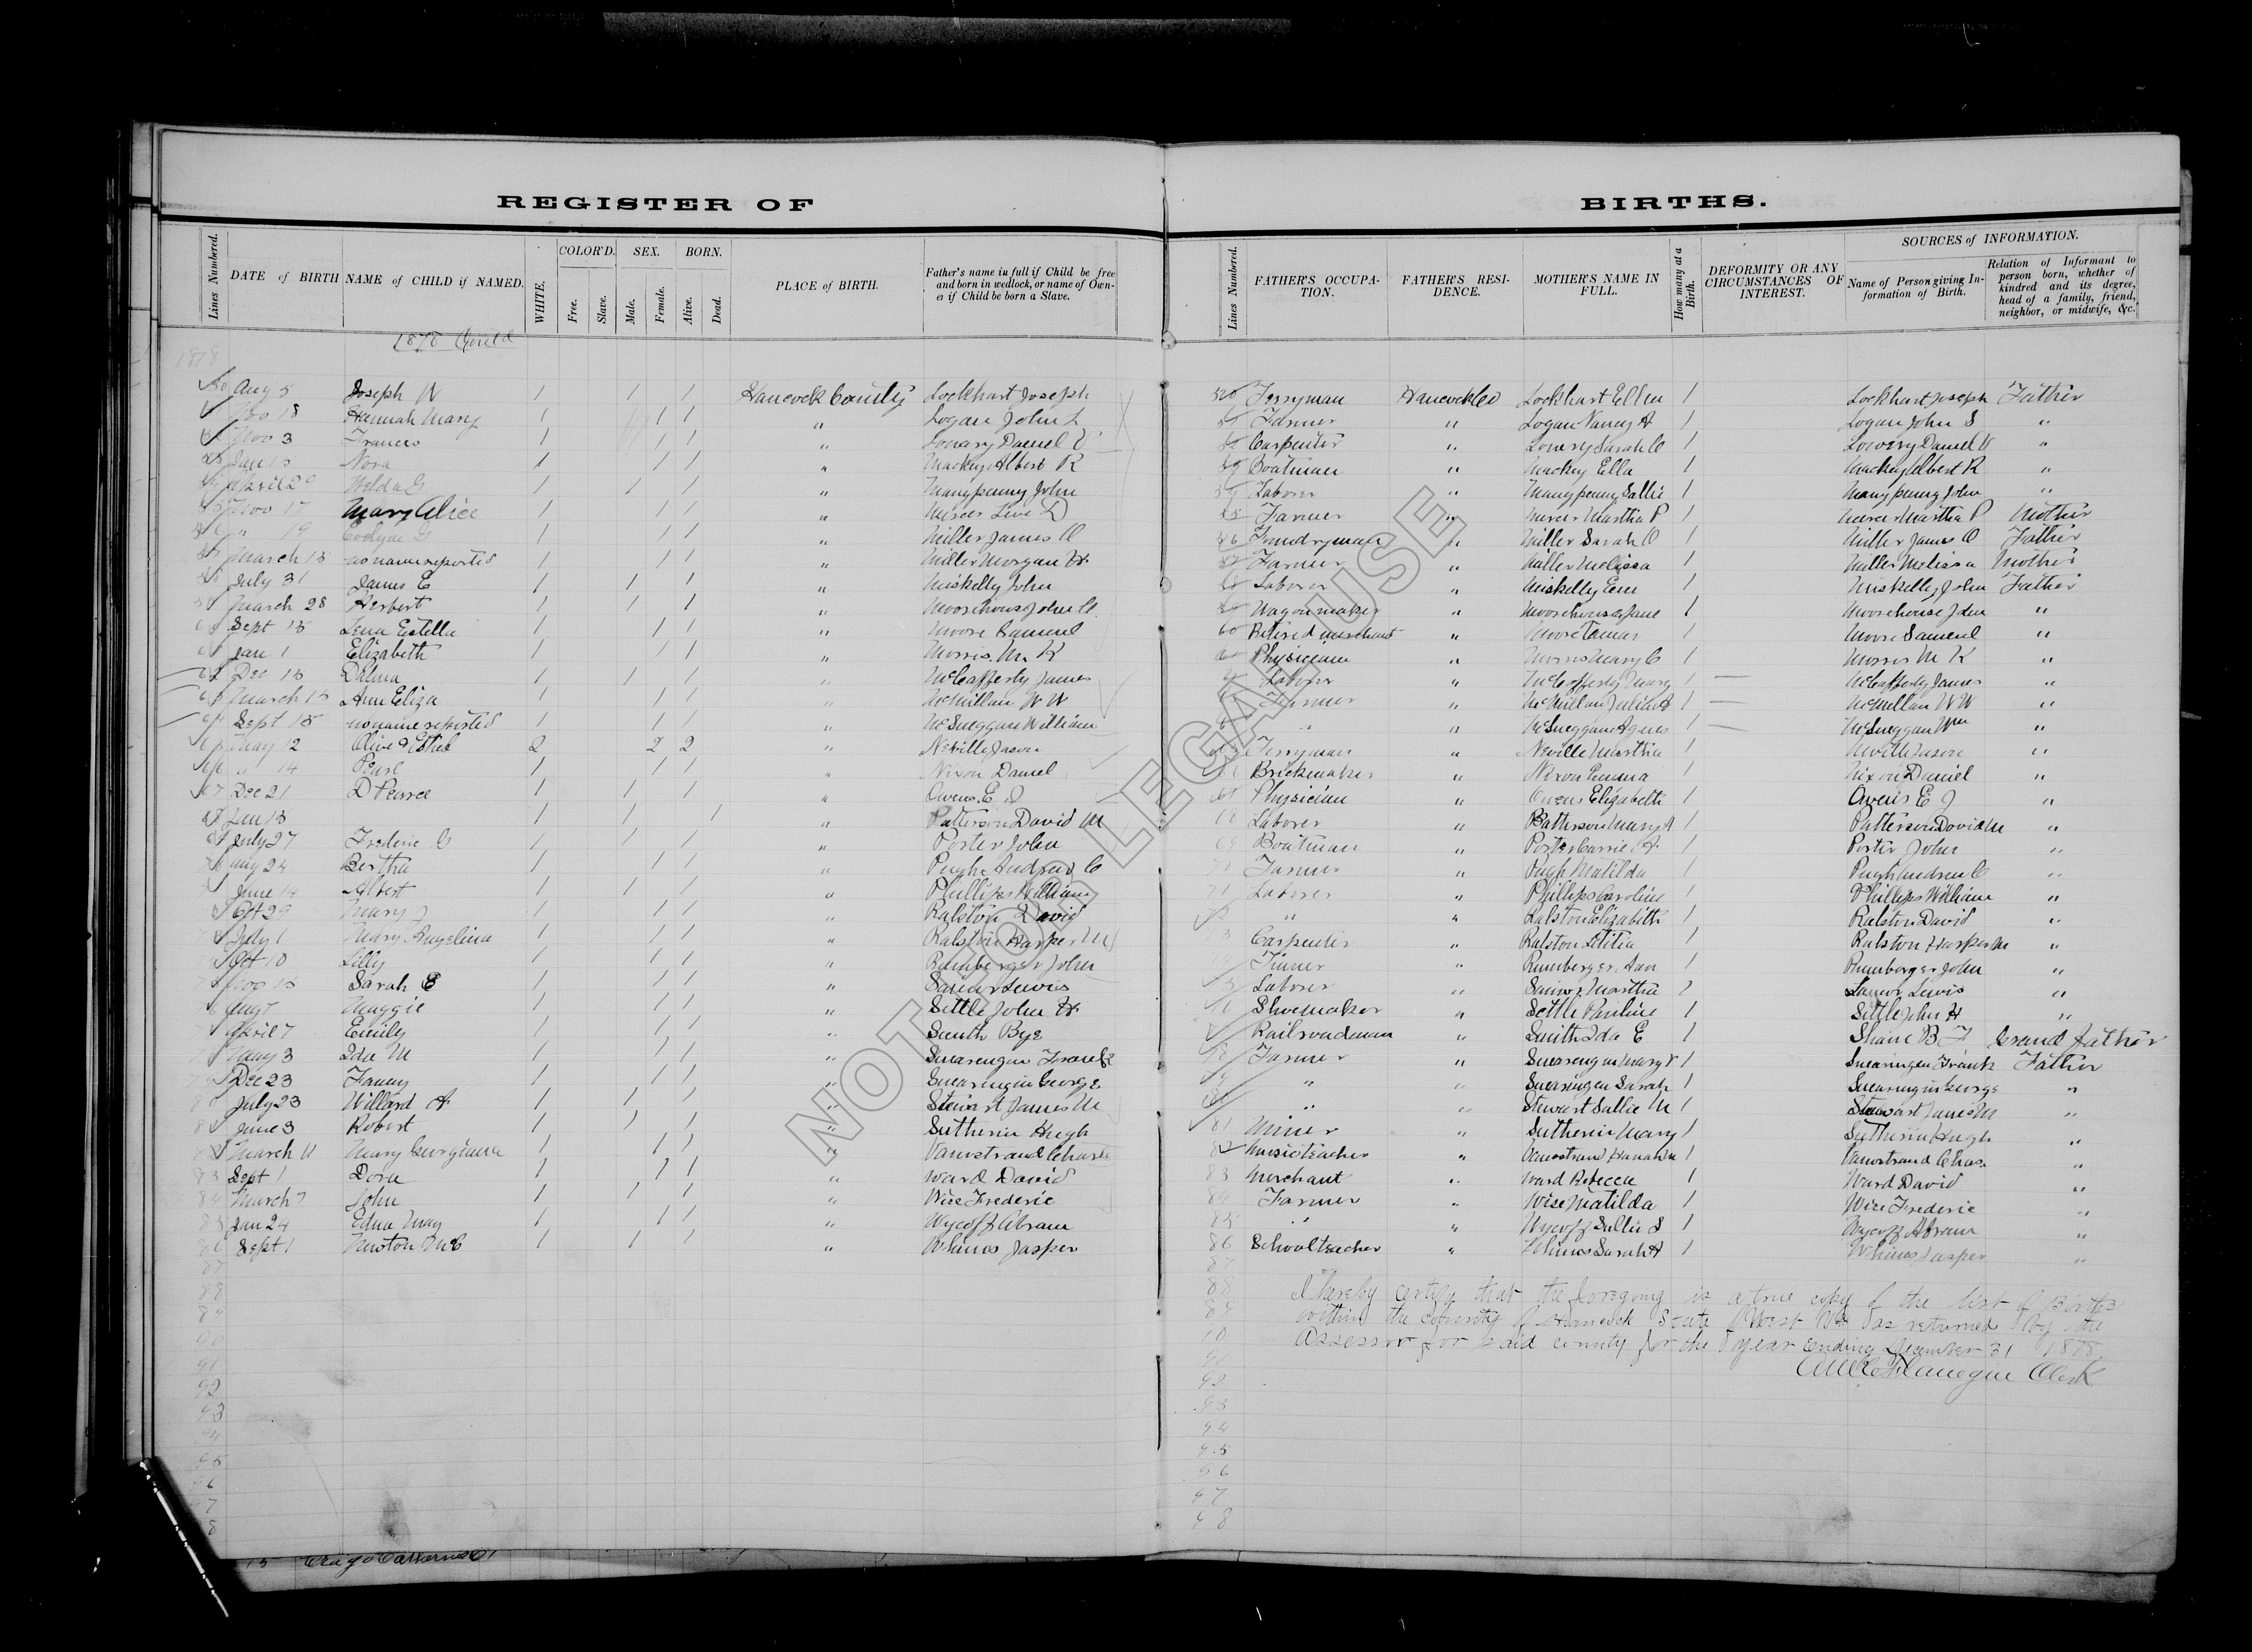 REGISTER OF BIRTHS.
Lines Numbered. DATE of BIRTH NAME of CHILD if NAMED. WHITE. COLOR'D. Free. Slave. SEX. Male. Female. BORN. Alive. Dead. PLACE of BIRTH. Father's name in full if Child be free and born in wedlock, or name of Owner if Child be born a Slave. Lines Numbered. FATHER'S OCCUPATION. FATHER'S RESIDENCE. MOTHER'S NAME IN FULL. How many at a Birth. DEFORMITY OR ANY CIRCUMSTANCES OF INTEREST. SOURCES of INFORMATION. Name of Person giving Information of Birth. Relation of Informant to person born, whether of kindred and its degree, head of a family, friend, neighbor, or midwife, &c.
1878
Aug 5 Joseph W 1 1 1 Hancock County Lockhart Joseph Ferryman Hancock Co Lockhart Ellen 1 Lockhart Joseph Father
Nov 18 Hannah Mary 1 1 1 " Logan John S Farmer " Logan Nancy A 1 Logan John S "
Nov 3 Frances 1 1 1 " Lowary Daniel V Carpenter " Lowery Sarah C 1 Lowery Daniel V "
Jan 15 Nora 1 1 1 " Mackey Albert R Boatman " Mackey Ella 1 Mackey Albert R "
April 20 Welda G 1 1 1 " Manypenny John Laborer " Manypenny Sallie 1 Manypenny John "
Nov 17 Mary Alice 1 1 1 " Mercer Levi D Farmer " Mercer Martha P 1 Mercer Martha P Mother
" 19 Evelyne G 1 1 1 " Miller James O Foundryman " Miller Sarah O 1 Miller James O Father
March 15 no name reported 1 1 1 " Miller Morgan H Farmer " Miller Melissa 1 Miller Melissa Mother
July 31 James E 1 1 1 " Miskelly John Laborer " Miskelly Em 1 Miskelly John Father
March 28 Herbert 1 1 1 " Moorehouse John C Wagonmaker " Moorehouse Jane 1 Moorehouse John "
Sept 15 Lena Estella 1 1 1 " Moore Samuel 60 Retired merchant " Moore Tamar 1 Moore Samuel "
Jan 1 Elizabeth 1 1 1 " Morris M K Physician " Morris Mary C 1 Morris M K "
Dec 15 Dalma 1 1 1 " McCafferty James Laborer " McCafferty Mary 1 McCafferty James "
March 15 Ann Eliza 1 1 1 " McMillan W W Farmer " McMillan Julia A 1 McMillan W W "
Sept 15 no name reported 1 1 1 " McSueggan William " " McSueggan Agnes 1 McSueggan Wm "
May 12 Olive & Ethel 2 2 2 " Neville Jason Ferryman " Neville Martha 1 Neville Jason "
" 14 Pearl 1 1 1 " Nixon Daniel Brickmaker " Nixon Emma 1 Nixon Daniel "
67 Dec 21 D Pearce 1 1 1 " Owens E J Physician " Owens Elizabeth 1 Owens E J "
Jan 13 1 1 1 " Patterson David M 68 Laborer " Patterson Mary A 1 Patterson David M "
July 27 Frederic G 1 1 1 " Porter John 69 Boatman " Porter Carrie A 1 Porter John "
Aug 24 Bertha 1 1 1 " Pugh Andrew C Farmer " Pugh Matilda 1 Pugh Andrew C "
June 14 Albert 1 1 1 " Phillips William 71 Laborer " Phillips Caroline 1 Phillips William "
Oct 29 Mary J 1 1 1 " Ralston David " " Ralston Elizabeth 1 Ralston David "
July 1 Mary Angelina 1 1 1 " Ralston Harper M Carpenter " Ralston Letitia 1 Ralston Harper M "
Oct 10 Lilly 1 1 1 " Rumberger John " Rumberger Ann 1 Rumberger John "
Nov 15 Sarah E 1 1 1 " Lewis Laborer " Martha Lewis "
Aug 7 Maggie 1 1 1 " Settle John H Shoemaker " Settle Pauline 1 Settle John H "
April 7 Emily 1 1 1 " Smith Bye Railroadman " Smith Ida E 1 Shane B F Grand father
May 3 Ida M 1 1 1 " Swearengen Frank Farmer " Swearengen Mary 1 Swearingen Frank Father
Dec 23 Fanny 1 1 1 " Swearingin George " " Swearingen Sarah 1 Swearingin George "
July 23 Willard A 1 1 1 " Stewart James M " " Stewart Sallie M 1 Stewart James M "
June 3 Robert 1 1 1 " Sutherin Hugh 81 Miner " Sutherin Mary 1 Sutherin Hugh "
March 11 Mary Georgiana 1 1 1 " Vanostrand Charles 82 Musicteacher " Vanostrand Hanah 1 Vanostrand Chas. "
83 Sept 1 Dora 1 1 1 " Ward David 83 Merchant " Ward Rebecca 1 Ward David "
84 March 7 John 1 1 1 " Wise Frederic 84 Farmer " Wise Matilda 1 Wise Frederic "
85 Jan 24 Edna May 1 1 1 " Wycoff Abram 85 " " Wycoff Sallie S 1 Wycoff Abram "
86 Sept 1 Newton McC 1 1 1 " Whims Jasper 86 Schoolteacher " Whims Sarah A 1 Whims Jasper "
87 87
88 88 I hereby certify that the foregoing is a true copy of the list of Births
89 89 within the County of Hancock State of West Va as returned by the
90 90 Assessor for said county for the year ending December 31 1878.
91 91
92 92 Clerk
93 93
94 94
95 95
96 96
97 97
98 98
NOT FOR LEGAL USE